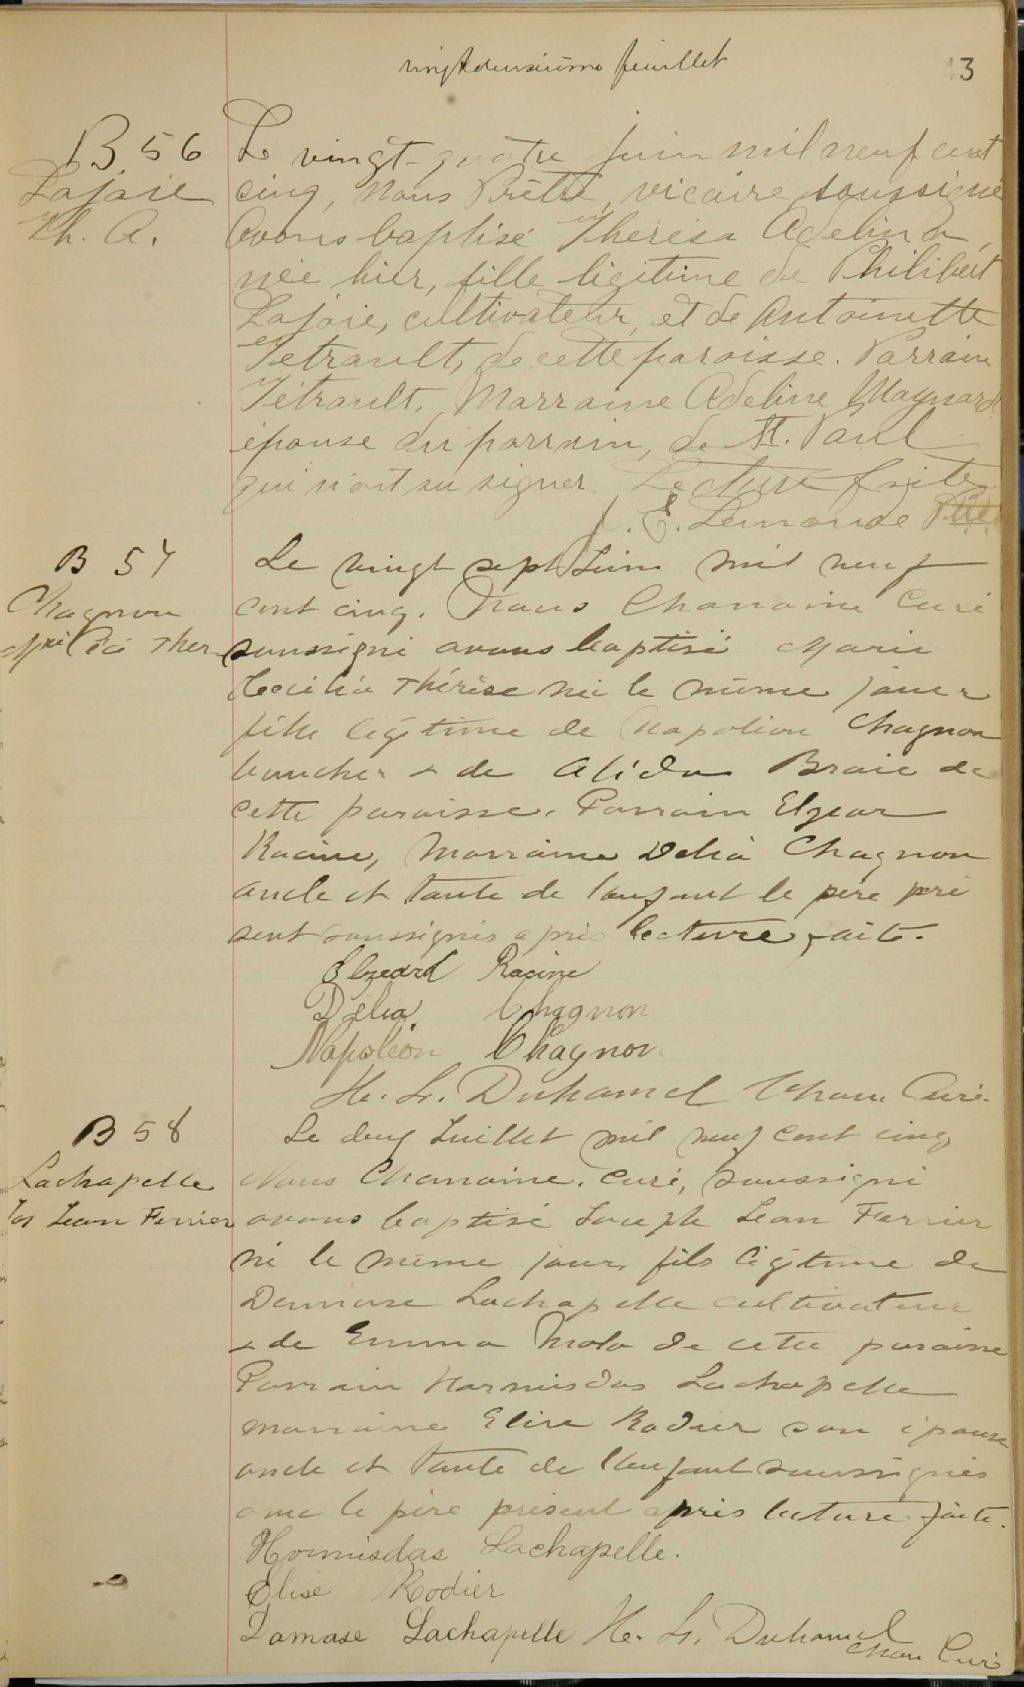 vingt deuxième feuillet
43
B 56
Lajoie
Th. A.
Le vingt-quatre juin mil neuf cent
cinq, nous Prêtre, vicaire soussigné
avons baptisé Thérésa Adelina,
née hier, fille légitime de Philibert
Lajoie, cultivateur, et de Antoinette
Tétrault, de cette paroisse. Parrain
Tétrault. Marraine Adeline Maynard
épouse du parrain, de St. Paul
qui n'ont su signer. Lecture faite
J. E. Lemonde Ptre
B 57
Chagnon
Mrie Céci Ther
Le vingt sept Juin mil neuf
cent cinq. Nous Chanoine Curé
soussigné avons baptisé Marie
Cecilia Thérèse née le même jour
fille légitime de Napoléon Chagnon
boucher & de Alida Braie de
cette paroisse. Parrain Elzear
Racine, Marraine Delia Chagnon
oncle et tante de l'enfant le père pré
sent soussignés après lecture faite.
Elzeard Racine
Délia Chagnon
Napoléon Chagnon
H. L. Duhamel Chan. Curé.
B 58
Lachapelle
Jos Lean Ferrier
Le deux Juillet mil neuf cent cinq
Nous Chanoine, Curé, soussigné
avons baptisé Joseph Lean Ferrier
né le même jour, fils légitime de
Damase Lachapelle cultivateur
& de Emma Mola de cette paroisse
Parrain Harmisdas Lachapelle
marraine Elise Rodier son épouse
oncle et tante de l'enfant soussignés
avec le père présent après lecture faite.
Hormisdas Lachapelle.
Elise Rodier
Damase Lachapelle H. L. Duhamel
Chan Curé